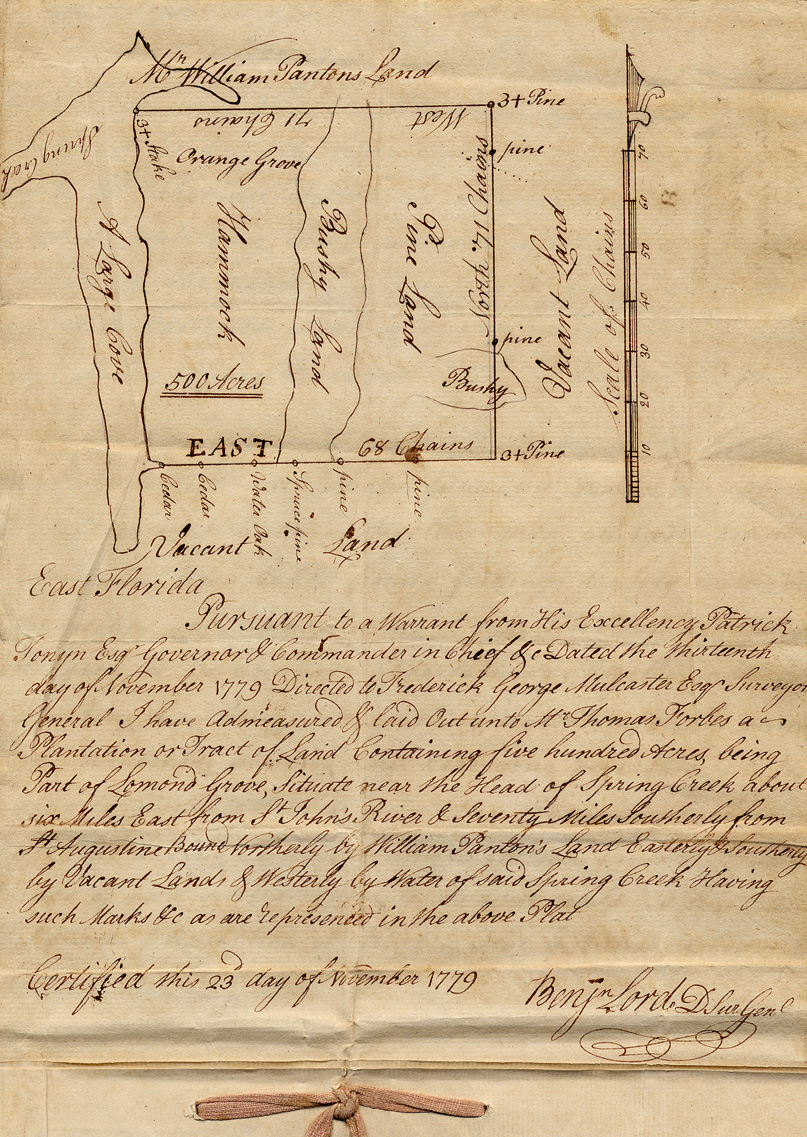 Mr William Pantons Land
3+ Pine
71 Chains
West
3+ Stake
Spring Creek
Orange Grove
pine
North 71 Chains
A Large Cove
Hammock
Bushy Land
Pine Land
Vacant Land
Scale of Chains
70
60
50
40
30
20
10
pine
Bushy
500 Acres
EAST
68 Chains
3+ Pine
Cedar
Cedar
Water Oak
Spruce pine
pine
pine
Vacant Land
East Florida
Pursuant to a Warrant from His Excellency Patrick
Tonyn Esqr Governor & Commander in Chief &c Dated the Thirteenth
day of November 1779 Directed to Frederick George Mulcaster Esqr Surveyor
General I have Admeasured & laid Out unto Mr Thomas Forbes a
Plantation or Tract of Land Containing five hundred Acres, being
Part of Lomond Grove, Situate near the Head of Spring Creek about
six Miles East from St John's River & Seventy Miles Southerly from
St Augustine Bound Northerly by William Panton's Land Easterly & Southerly
by Vacant Lands & Westerly by Water of said Spring Creek Having
such Marks &c as are represented in the above Plat
Certified this 23d day of November 1779
Benjn Lord D Sur Genl